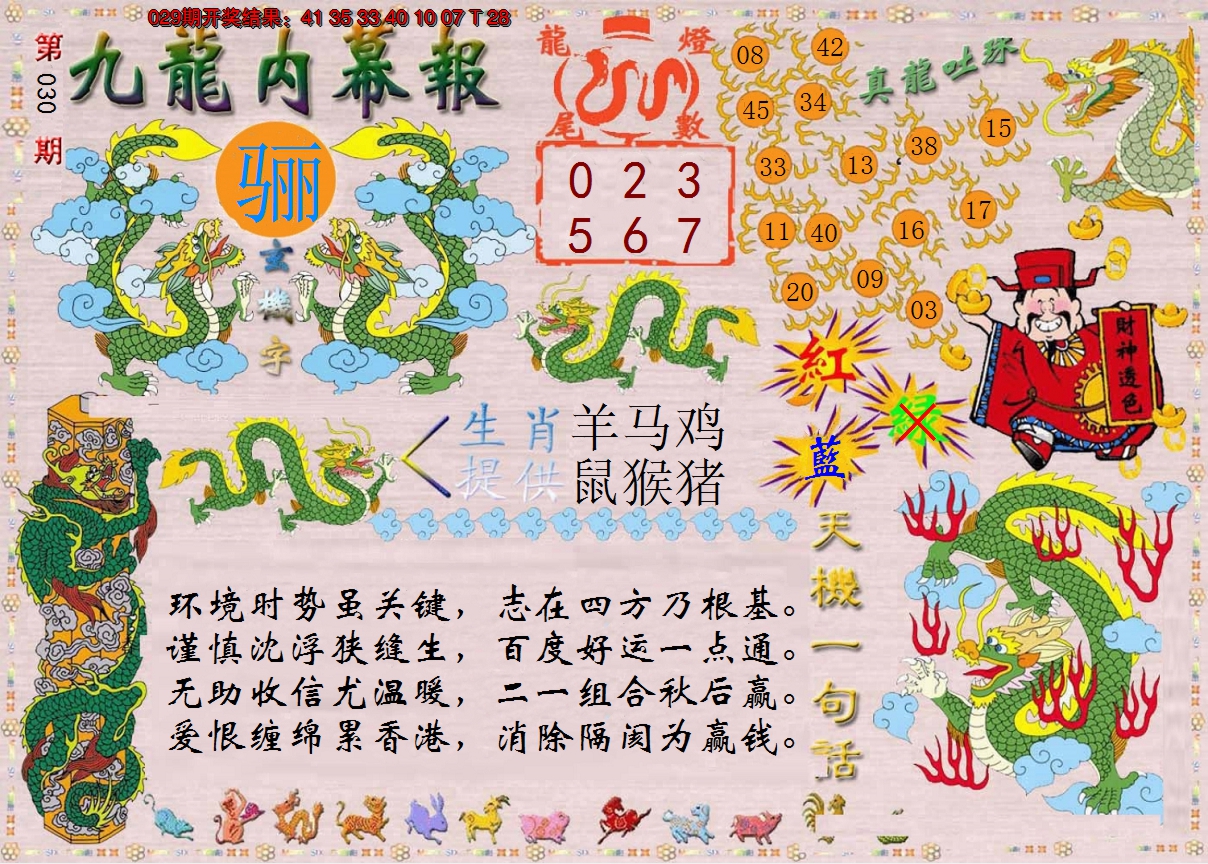 029期开奖结果：41 35 33 40 10 07 T 28
第030期
九龍内幕報
骊
玄機字
龍燈
尾數
0 2 3
5 6 7
真龍吐珠
08 42
45 34
33 13 38 15
11 40 16 17
20 09 03
紅
绿
藍
財神透色
生肖 羊马鸡
提供 鼠猴猪
天機一句話
环境时势虽关键，志在四方乃根基。
谨慎沈浮狭缝生，百度好运一点通。
无助收信尤温暖，二一组合秋后赢。
爱恨缠绵累香港，消除隔阂为赢钱。